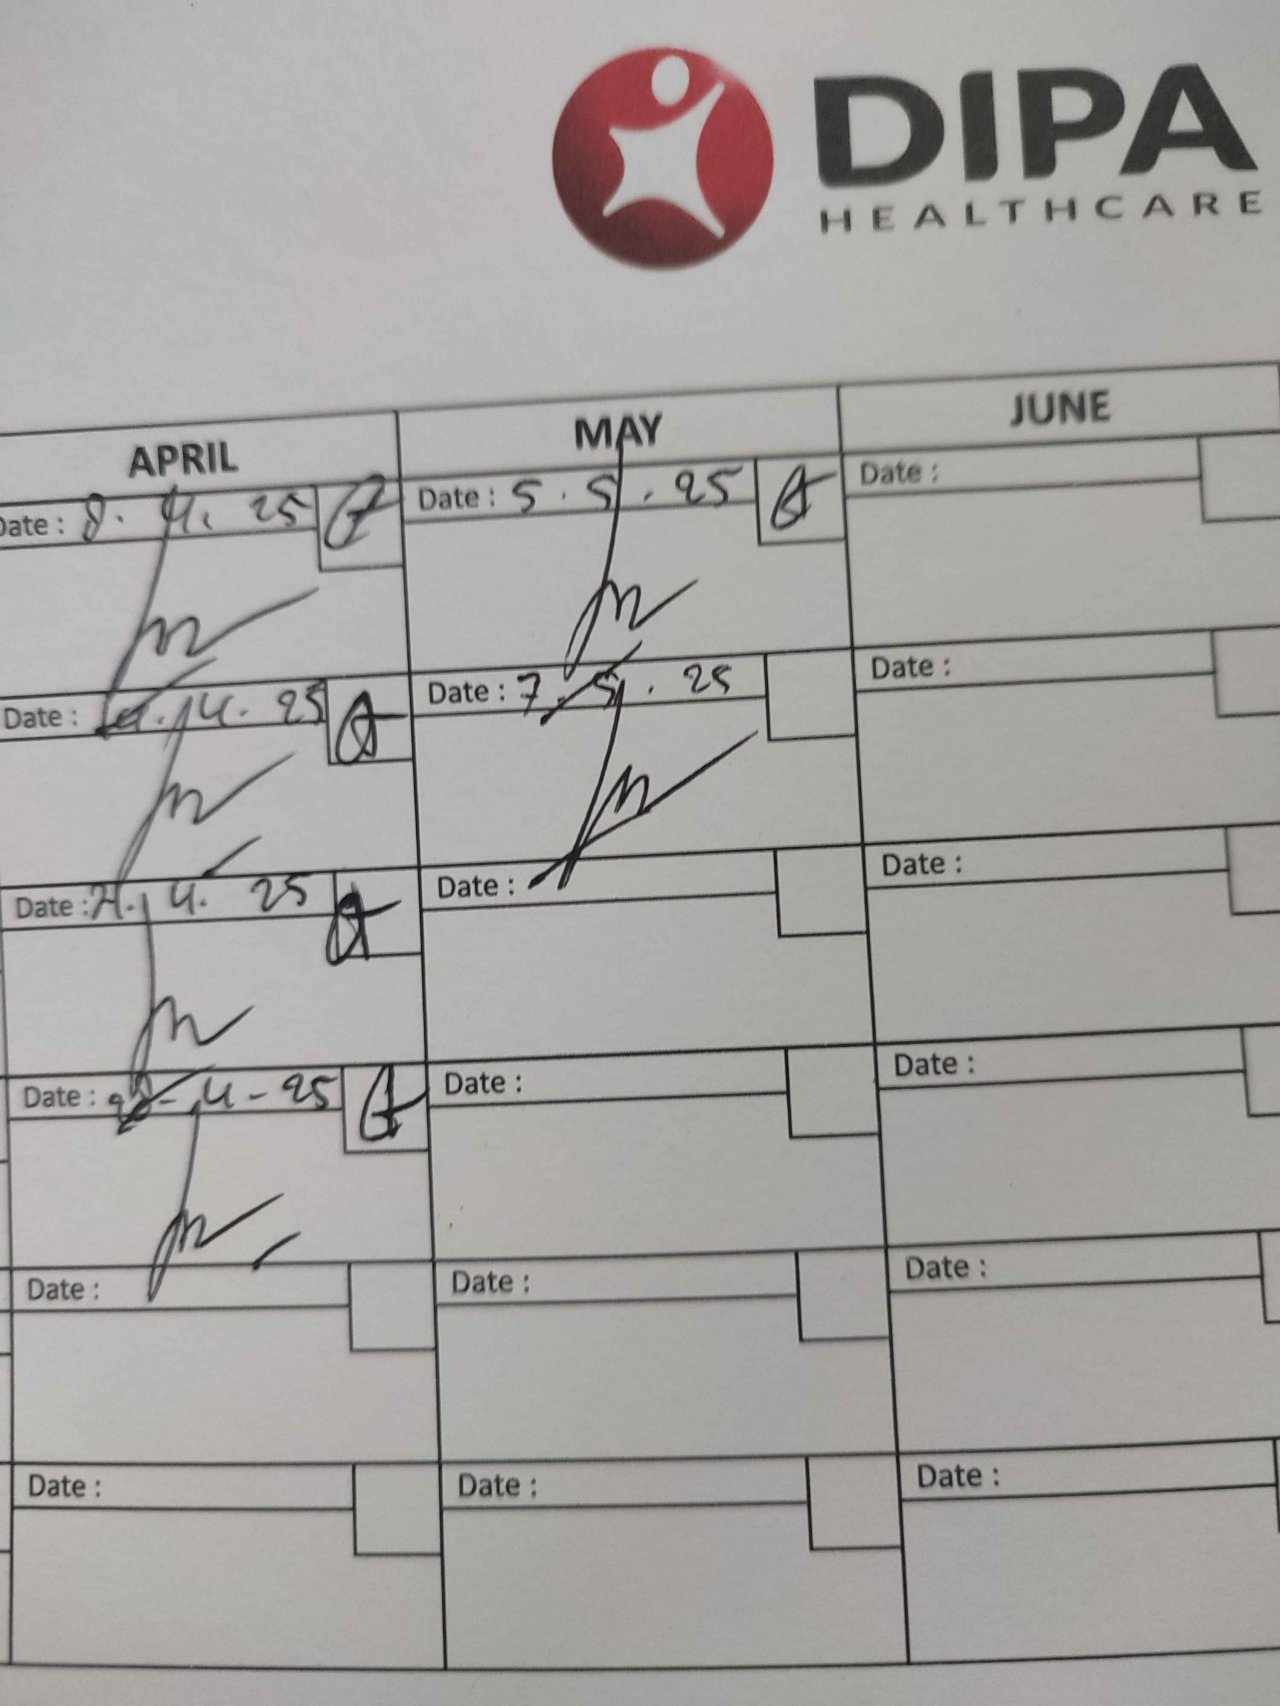 DIPA
HEALTHCARE
APRIL MAY JUNE
Date : 8. 4. 25 Date : 5. 5. 25 Date :
Date : 4. 25 Date : 7. 5. 25 Date :
Date : 4. 25 Date : Date :
Date : 4 - 25 Date : Date :
Date : Date : Date :
Date : Date : Date :